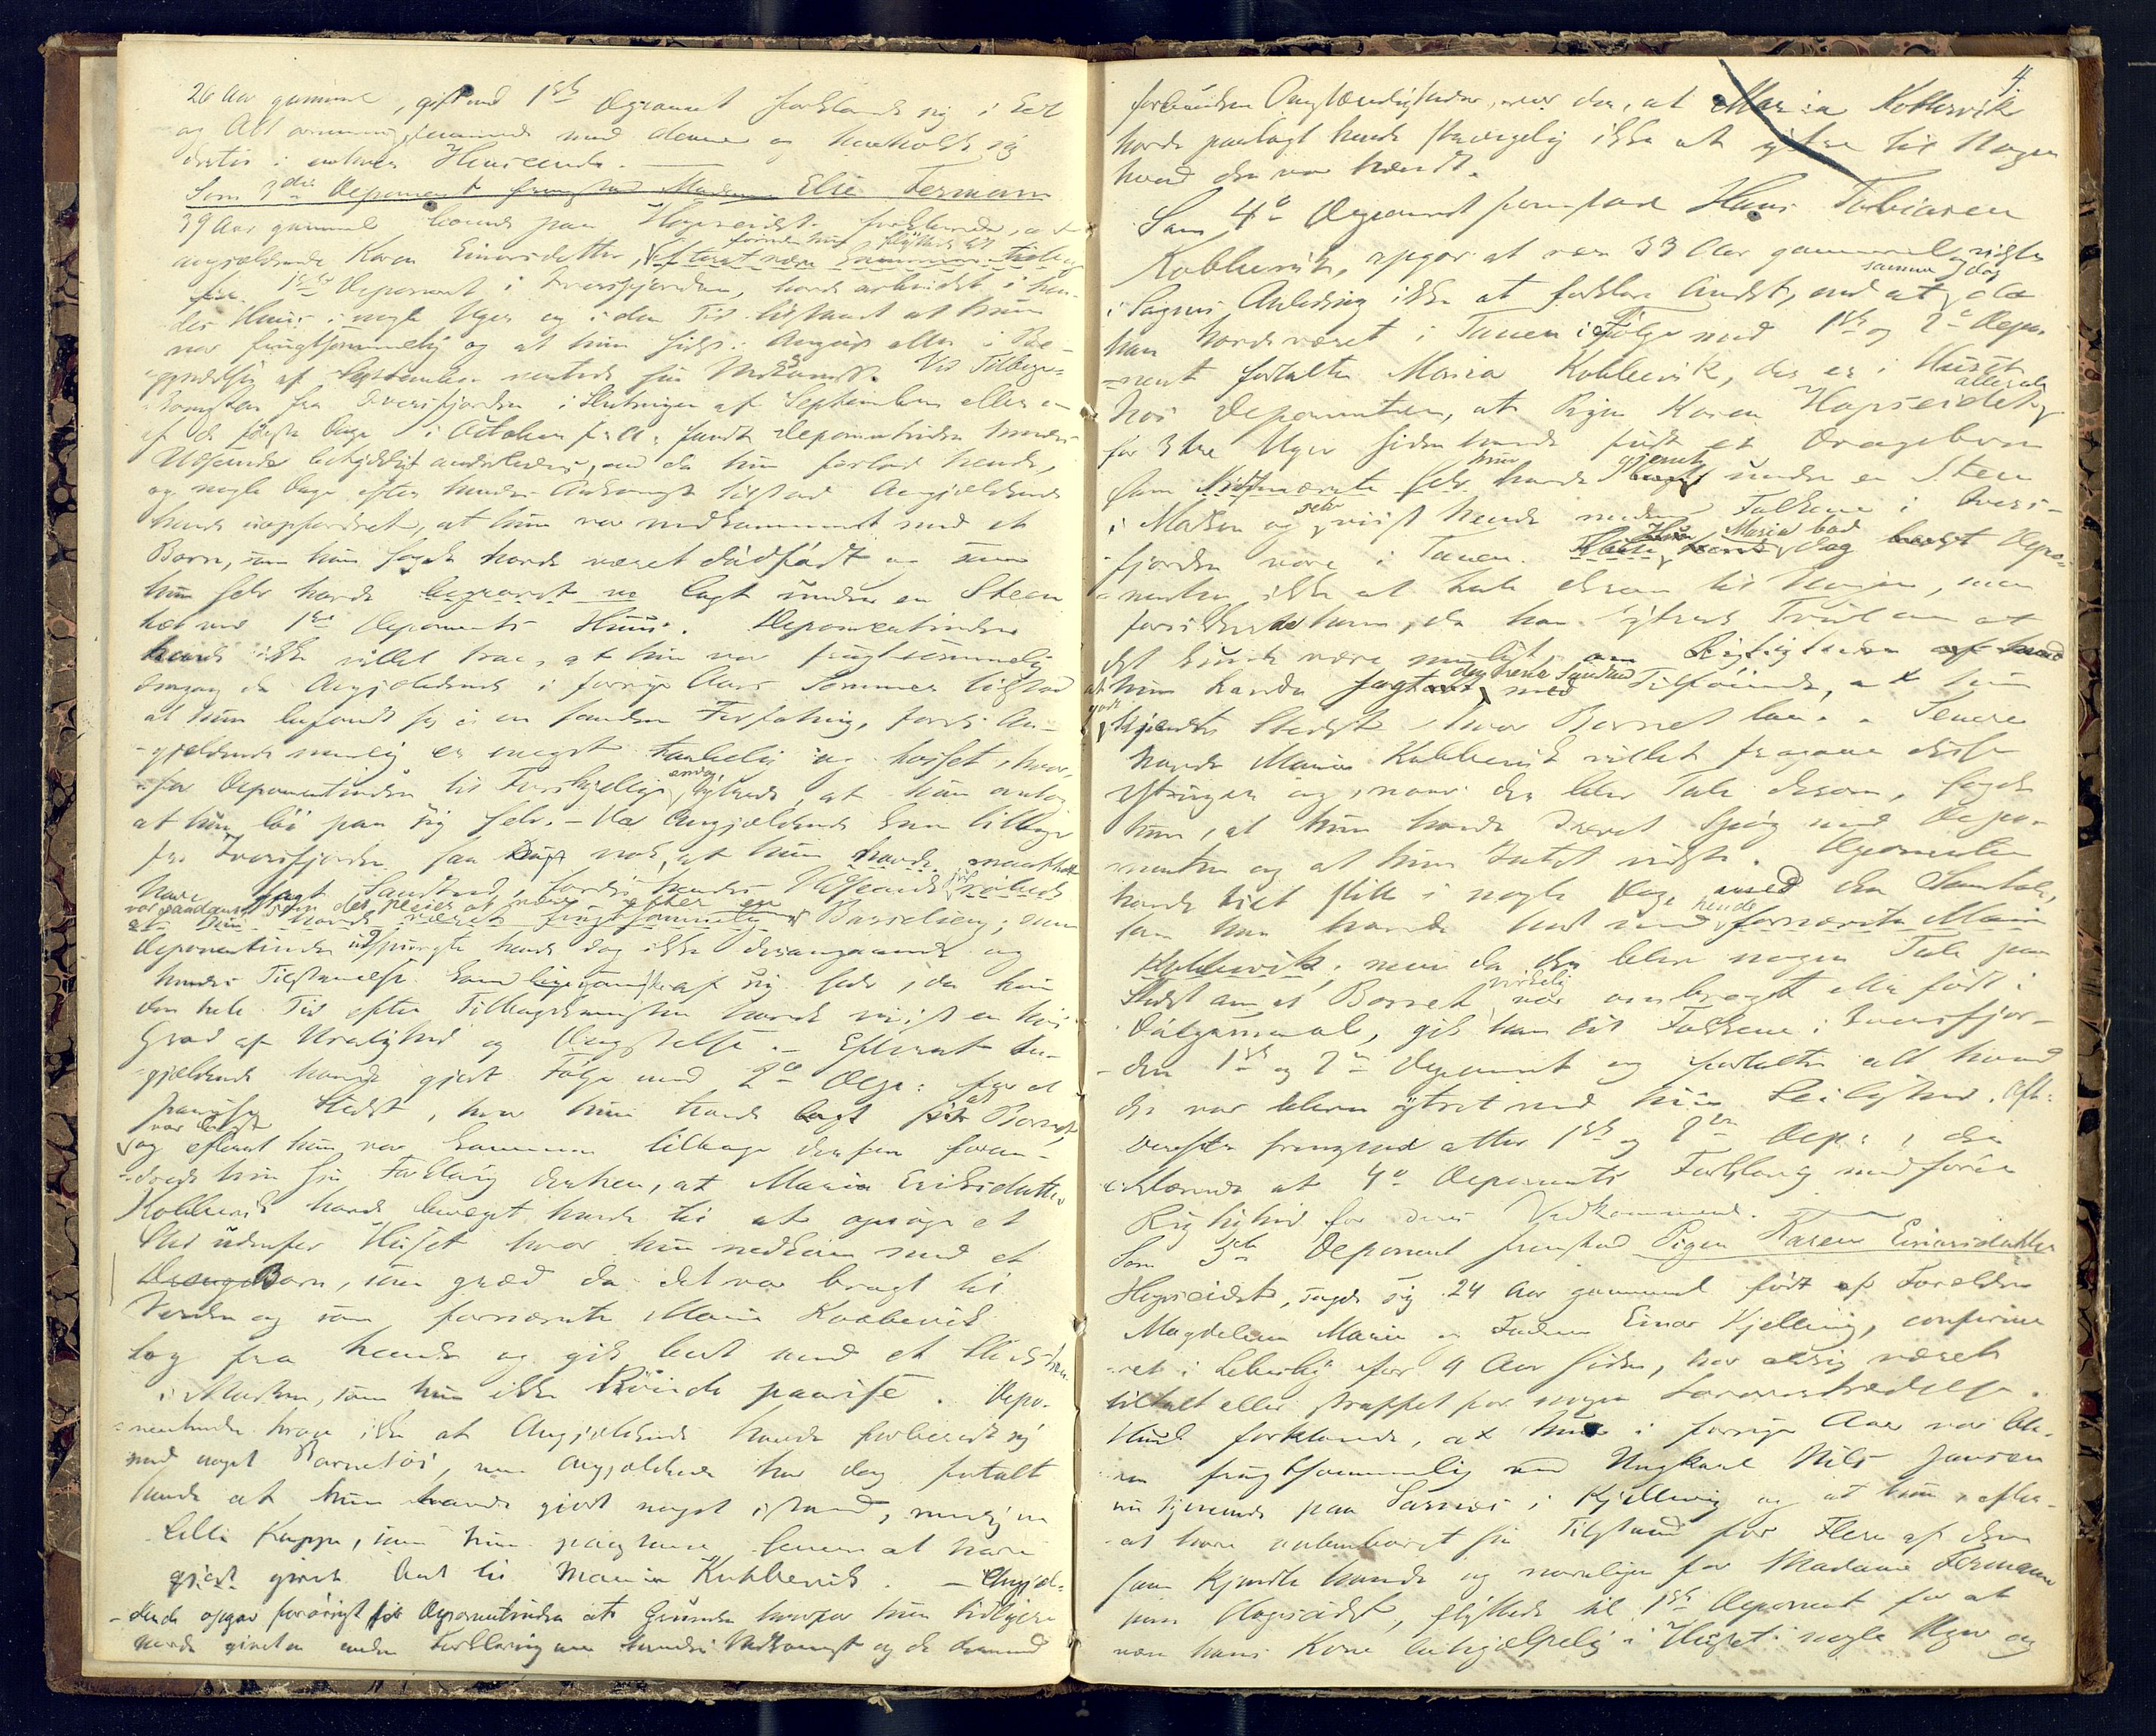 26 Aar gammel, gift med 1ste Deponent forklarede sig i Eet
og Alt overensstemmende med denne og henholdt sig
dertil i enhver Henseende.
Som 3die Deponent fremstod Madame Else Fermann
39 Aar gammel boende paa Hopseidet forklarede, at
angjældende Karen Einersdatter, efterat være kommen tilbage
fra 1ste Deponent i Iversfjorden, havde arbeidet i hen-
des Huus i nogle Uger og i den Tid tilstaaet at hun
var frugtsommelig og at hun sidst i August eller i Be-
gyndelsen af September ventede sin Nedkomst. Ved Tilbage-
komsten fra Iversfjorden i Slutningen af September eller en
af de første Dage i October f. A. fandt Deponentinden hendes
Udseende betydeligt anderledes, end da hun forlod hende,
og nogle Dage efter hendes Ankomst tilstod Angjældende
hende uopfordret, at hun var nedkommet med et
Barn, som hun sagde havde været dødfødt og som
hun selv havde begravet og lagt under en Steen
tæt ved 1ste Deponents Huus. Deponentinden
havde ikke villet troe, at hun var frugtsommelig
dengang da Angjældende i forrige Aars Sommer tilstod
at hun befandt sig i en saadan Forfatning, fordi An-
gjældende nemlig er meget taabelig og kaisset, hvor-
for Deponentinden til Forskjellige endog yttrede, at hun antog
at hun løi paa sig selv. – Da Angjældende kom tilbage
fra Iversfjorden saa Dep. nok, at hun havde maaskee
have sagt Sandhed, fordi hendes Udseende røbede
var saadant som det pleier at være efter en
at hun havde været frugtsommelig Barselseng; men
Deponentinden udspurgte hende dog ikke desangaaende og
hendes Tilstaaelse kom ligesom af sig selv, da hun
den hele Tid efter Tilbagekomsten havde viist en høi
Grad af Urolighed og Ængstelse. – Efterat An-
gjældende havde gjort Følge med 2den Dep: for at
paavise Stedet, hvor hun havde lagt sit Barnet
var lagt
og efterat hun var kommen tilbage derfra foran-
drede hun sin Forklaring derhen, at Maria Eriksdatter
Kobbevik havde bevæget hende til at opsøge et
Sted udenfor Huset hvor hun nedkom med et
Drenge Barn, som græd da det var bragt til
Verden og som fornævnte Maria Kobbevik
tog fra hende og gik bort med et Sted hen
i Marken, som hun ikke kunde paavise. Depo-
nentinden troer ikke at Angjældende havde forberedt sig
med noget Barnetøi, men Angjældende har dog fortalt
hende at hun havde gjort noget istand, nemlig en
lille Kappe, som hun paastaaer senere at have
gjort givet bort til Maria Kobbevik. – Angjæl-
dende opgav forøvrigt for Deponentinden at Grunden hvorfor hun tidligere
havde givet en anden Forklaring om hendes Nedkomst og de dermed
4.
forbundne Omstændigheder, var den, at Maria Kobbevik
havde paalagt hende strængelig ikke at yttre til Nogen
hvad der var hændt.
Som 4de Deponent fremstod Hans Tobiasen
Kobbevik, opgav at være 33 Aar gammel og vidste
i Sagens Anledning ikke at forklare Andet, end at samme Dag da
han havde været i Tanen i Følge med 1ste og 2den Depo-
nent fortalte Maria Kobbevik, der er i Huset
hos Deponenten, at Pigen Karen Hopseidet allerede
for 3 tre Uger siden havde født et Drengebarn
som Sidstnævnte selv hun havde gjemt bragt under en Steen
i Marken og selv viist hende medens Folkene i Ivers-
fjorden vare i Tanen. Maria bad dog Depo-
nenten ikke at tale derom til Nogen, men
forsikkrede ham, da han yttrede Tvivl om at
det kunde være muligt, om Rigtigheden af hvad
at hun havde sagt den rene Sandhed med Tilføiende, at hun
godt kjendte Stedet hvor Barnet laae. Senere
havde Maria Kobbevik villet fragaae disse
Yttringer og, naar der blev Tale derom, sagde
hun, at hun havde drevet Spøg med Depo-
nenten og at hun Intet vidste. Deponenten
havde tiet stille i nogle Dage med den Samtale,
som han havde havt med hende fornævnte Maria
Kobbevik, men da der blev nogen Tale paa
Stedet om at Barnet virkelig var ombragt eller født i
Dølgsmaal, gik han til Folkene i Iversfjor-
den 1ste og 2den Deponent og fortalte alt hvad
der var bleven yttret ved hiin Leilighed. Eft:
Derefter fremstod atter 1ste og 2den Dep:, der
erklærede at 4de Deponents Forklaring medfører
Rigtighed for deres Vedkommende.
Som 5te Deponent fremstod Pigen Karen Einersdatter
Hopseidet, sagde sig 24 Aar gammel født af Forældre
Magdelena Maria og Faderen Einer Kjelling, confirme-
ret i Lebesby for 9 Aar siden, har aldrig været
tiltalt eller straffet for nogen Lovovertrædelse.
Hun forklarede, at hun i forrige Aar var ble-
ven frugtsommelig ved Ungkarl Nils Jansen
nu tjenende paa Sarnes i Kjelvig og at hun, efter-
at have aabenbaret sin Tilstand for Flere af dem
som kjendte hende og navnligen for Madame Fermann
paa Hopseidet, flyttede til 1ste Deponent for at
være hans Kone behjælpelig i Huset i nogle Uger og